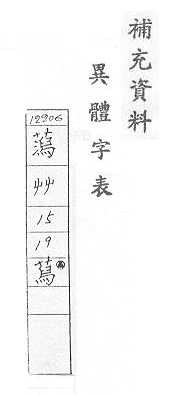 補充資料
異體字表
12906
艸
15
19
蕮